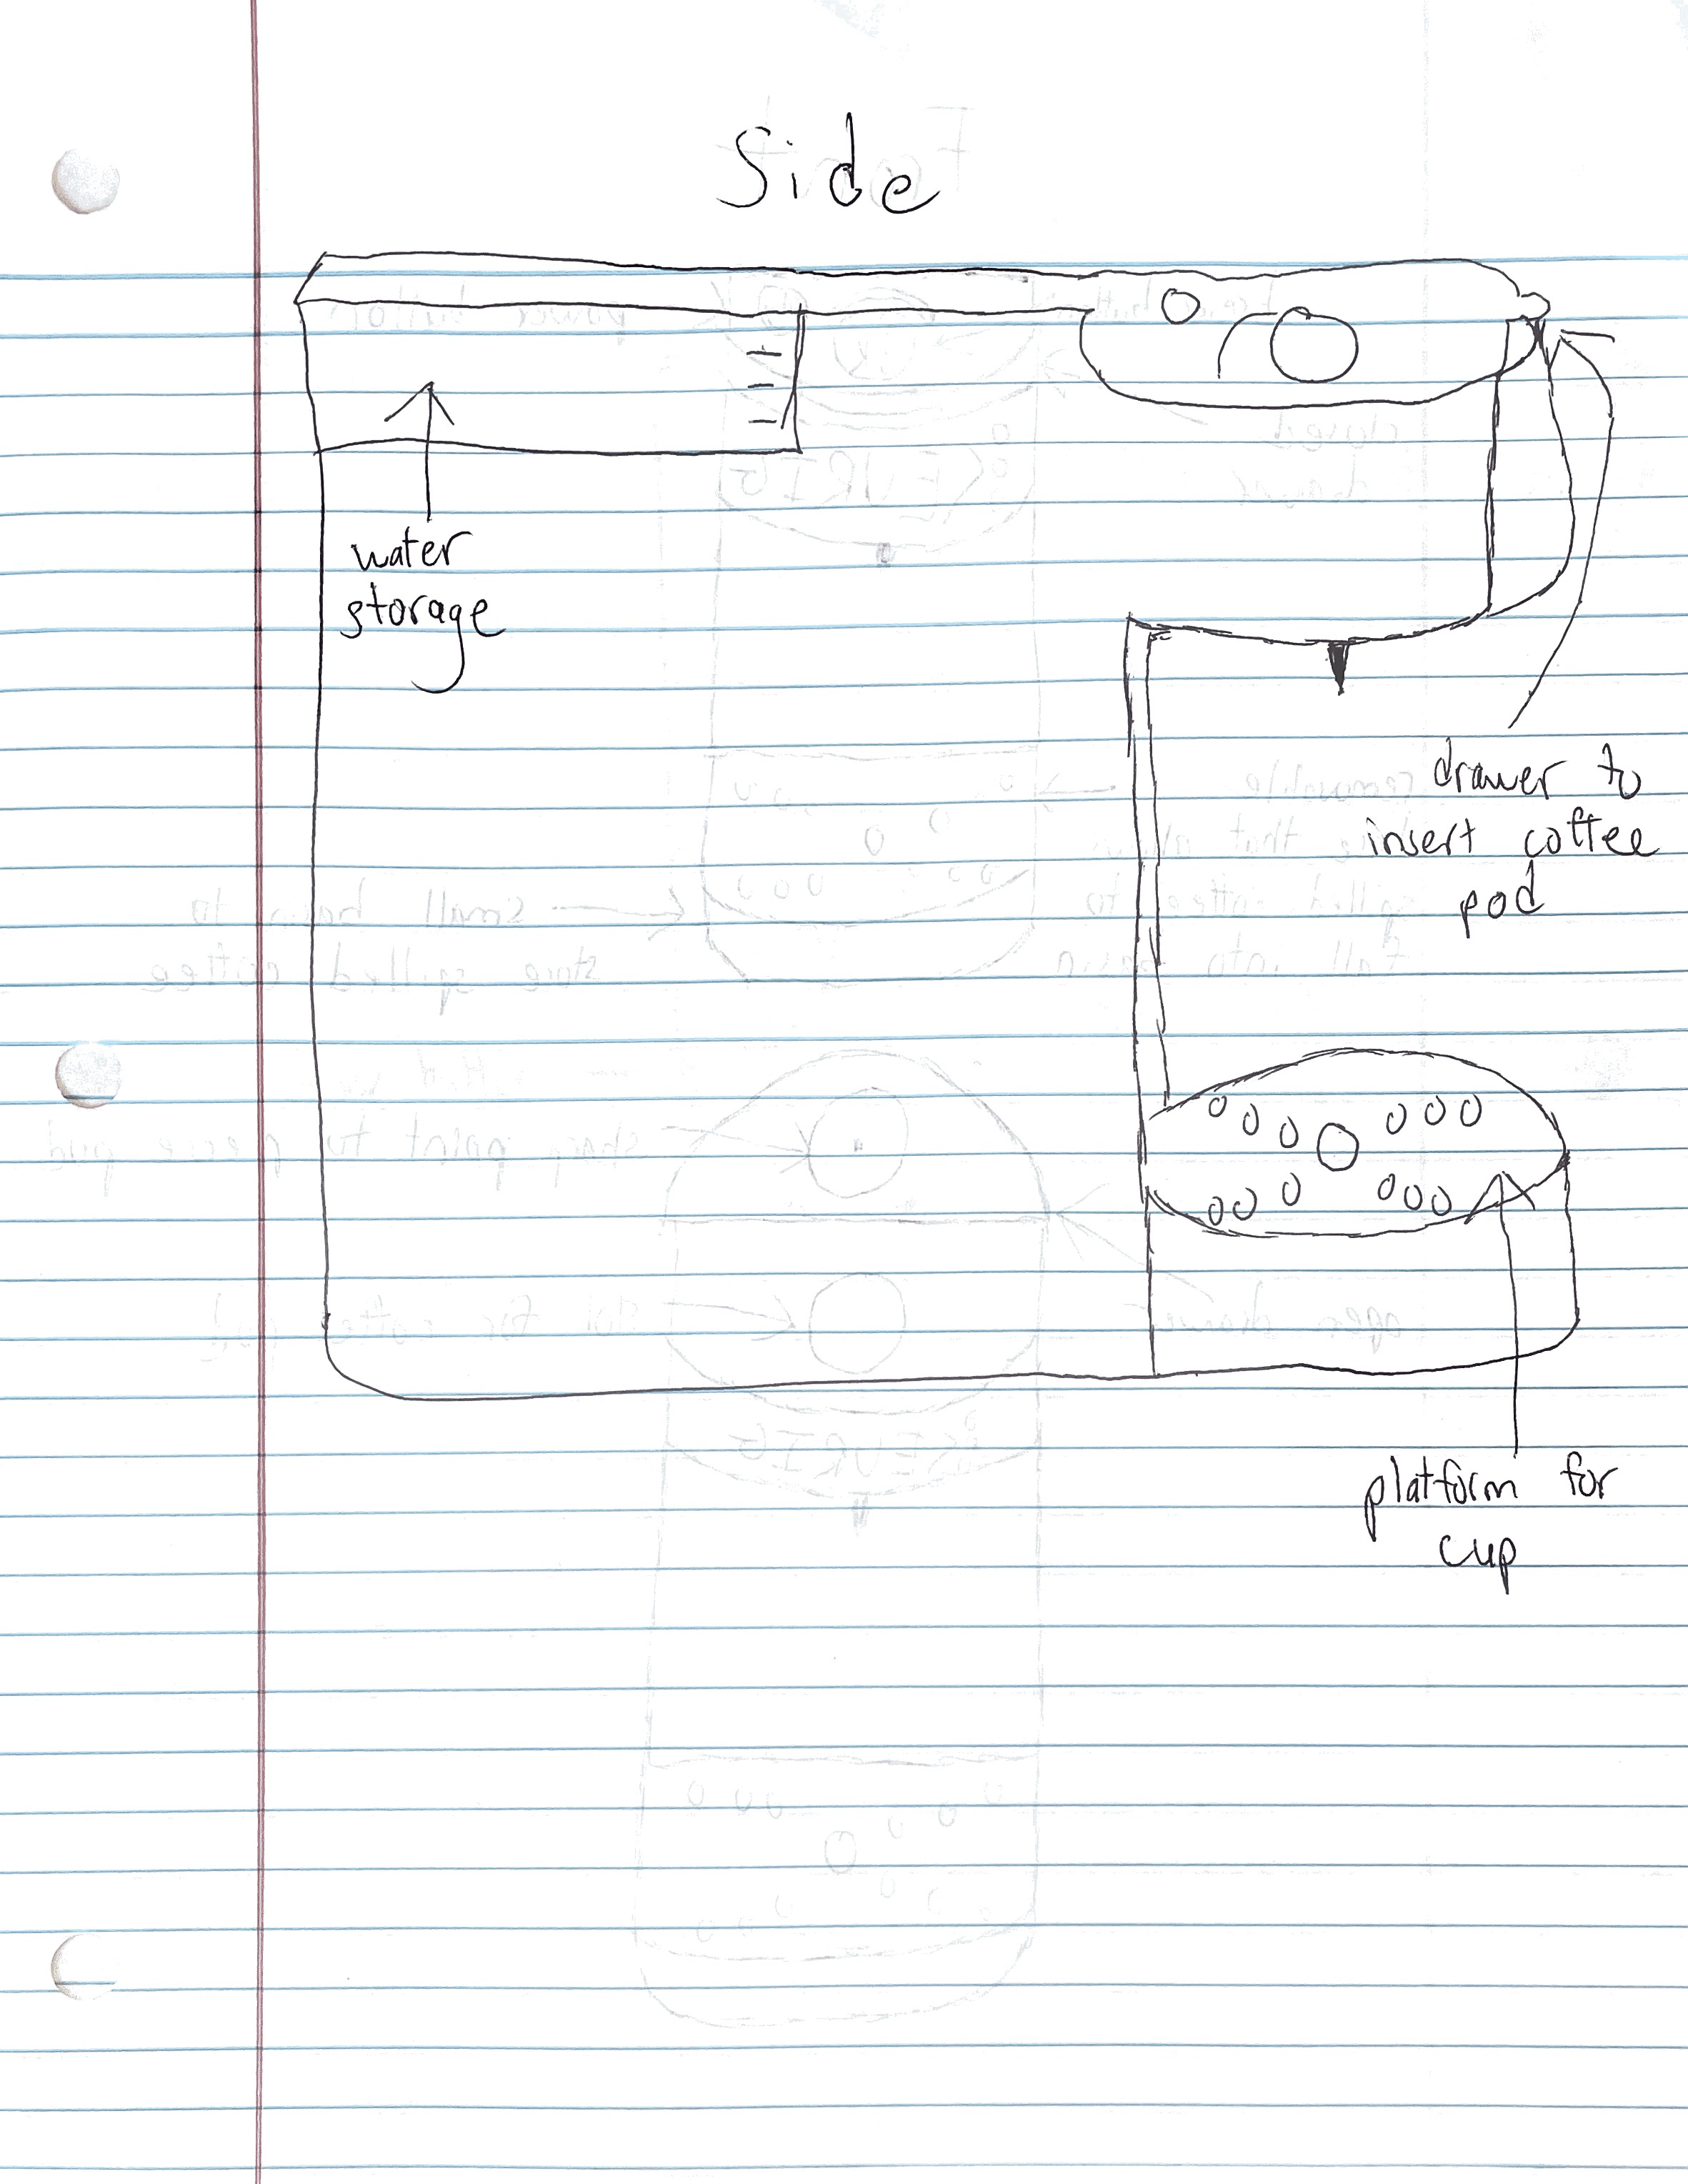 Side
water
storage
drawer to
insert coffee
pod
platform for
cup